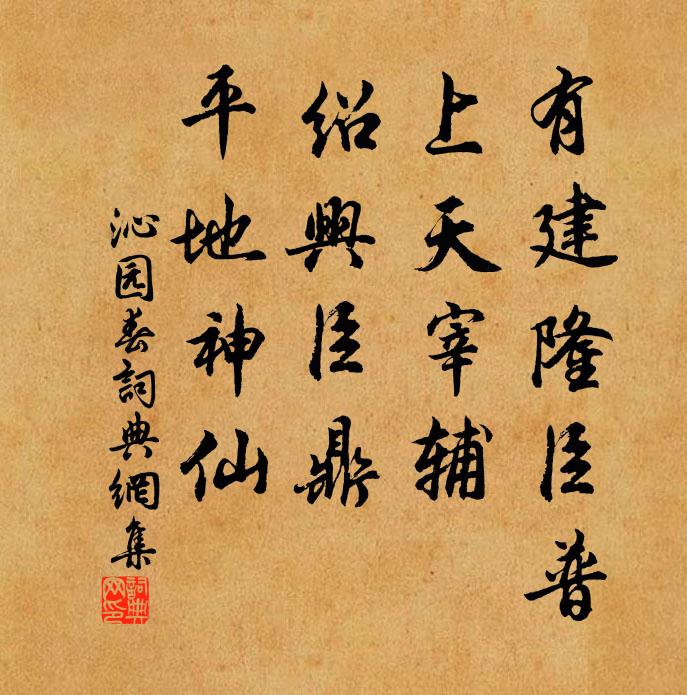 有建隆臣普
上天宰辅
绍興臣鼎
平地神仙
沁园春詞典網集
詞典
网印